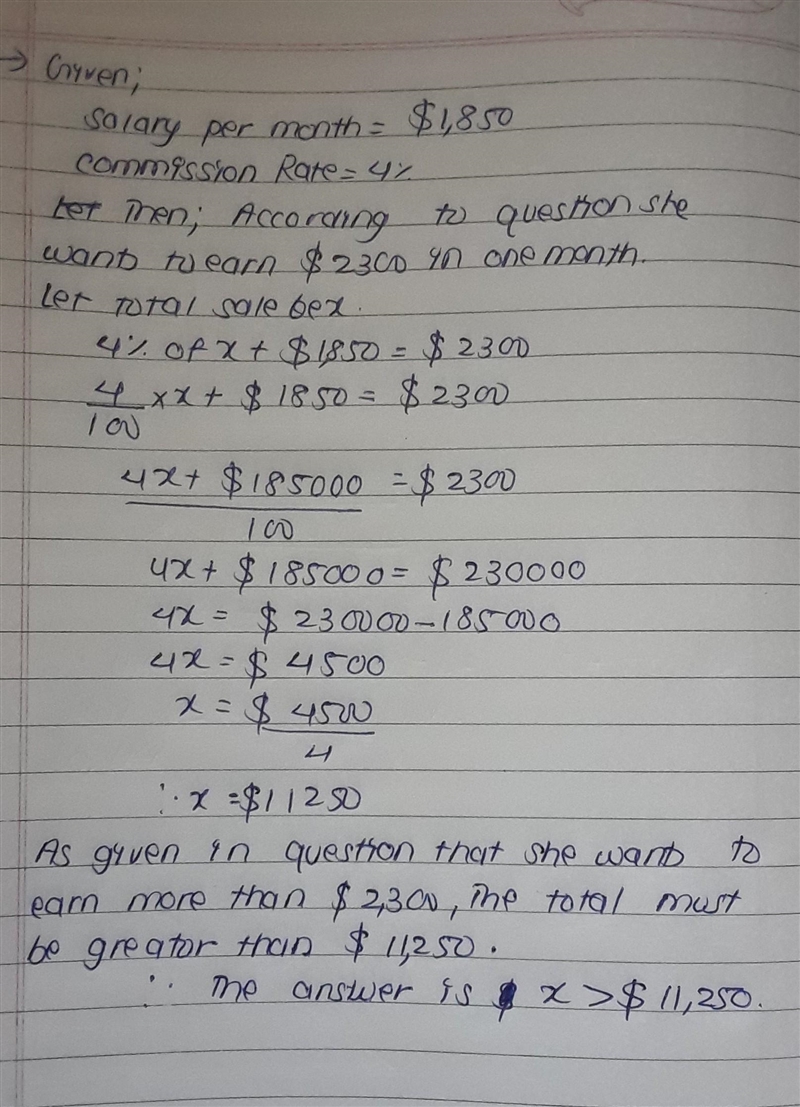 → Given;
Salary per month = $1,850
Commission Rate = 4%
Then; According to question she
wants to earn $2300 in one month.
Let total sale be x.
4% of x + $1,850 = $2300
4/100 × x + $1850 = $2300
4x + $185000/100 = $2300
4x + $185000 = $230000
4x = $230000 - 185000
4x = $4500
x = $4500/4
∴ x = $11250
As given in question that she wants to
earn more than $2,300, The total must
be greator than $11,250.
∵ The answer is x > $11,250.